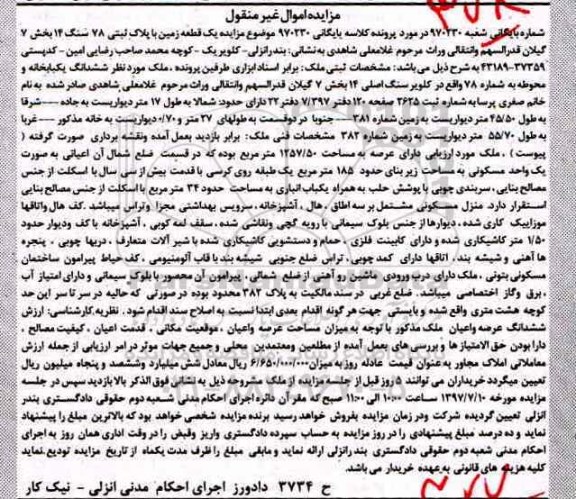 مزایده اموال غیر منقول
شماره بایگانی شعبه ۹۷۰۲۳۰ در مورد پرونده کلاسه بایگانی ۹۷۰۲۳۰ موضوع مزایده یک قطعه زمین با پلاک ثبتی ۷۸ سنگ ۱۴ بخش ۷
گیلان قدرالسهم وانتقالی وراث مرحوم غلامعلی شاهدی به نشانی: بندرانزلی- کلویر یک - کوچه محمد صاحب رضایی امین - کدپستی
۳۷۳۵۹-۴۳۱۸۹ به شرح ذیل می باشد: مشخصات ثبتی ملک: برابر اسناد ابرازی طرفین پرونده ، ملک مورد نظر ششدانگ یکبابخانه و
محوطه به شماره ۷۸ واقع در کلویر سنگ اصلی ۱۴ بخش ۷ گیلان قدرالسهم وانتقالی وراث مرحوم غلامعلی شاهدی صادر شده به نام
خانم صغری پرسا به شماره ثبت ۲۶۲۵ صفحه ۱۲۰ دفتر ۷/۳۹۷ دفتر ۲۲ دارای حدود: شمالا به طول ۱۷ متر دیواریست به جاده ---شرقا
به طول ۴۵/۵۰ متر دیواریست به زمین شماره ۳۸۱ ---- جنوبا در دوقسمت به طولهای ۲۷ متر و ۰/۷۰ دیواریست به خانه مذکور ---غربا
به طول ۵۵/۷۰ متر دیواریست به زمین شماره ۳۸۲ مشخصات فنی ملک: برابر بازدید بعمل آمده ونقشه برداری صورت گرفته (
پیوست ) ، ملک مورد ارزیابی دارای عرصه به مساحت ۱۲۵۷/۵۰ متر مربع بوده که در قسمت ضلع شمال آن اعیانی به صورت
یک واحد مسکونی به مساحت زیر بنای حدود ۱۸۵ متر مربع یک طبقه روی کرسی با قدمت بیش از سی سال با اسکلت از جنس
مصالح بنایی ، سربندی چوبی با پوشش حلب به همراه یکباب انباری به مساحت حدود ۳۴ متر مربع با اسکلت از جنس مصالح بنایی
استقرار دارد. منزل مسکونی مشتمل بر سه اطاق ، هال ، آشپزخانه ، سرویس بهداشتی مجزا وتراس میباشد .کف هال واتاقها
موزاییک کاری شده ، دیوارها از جنس بلوک سیمانی با رویه گچی ونقاشی شده ، سقف لمه کوبی ، آشپزخانه با کف ودیوار حدود
۱/۵۰ متر کاشیکاری شده و دارای کابینت فلزی ، حمام و دستشویی کاشیکاری شده با شیر آلات متعارف ، دربها چوبی ، پنجره
ها آهنی و شیشه بند، اتاقها دارای کمد چوبی ، تراس ضلع جنوبی شیشه بند با قاب آلومنیومی ، کف حیاط پیرامون ساختمان
مسکونی بتونی ، ملک دارای درب ورودی ماشین رو آهنی از ضلع شمالی ، پیرامون آن محصور با بلوک سیمانی و دارای امتیاز آب
، برق وگاز اختصاصی میباشد. ضلع غربی در سند مالکیت به پلاک ۳۸۲ محدود بوده در صورتی که حالیه در سر تا سر این حد
کوچه هشت متری واقع شده و بایستی جهت هر گونه اقدام بعدی ابتدا نسبت به اصلاح سند اقدام شود . نظریه کارشناسی: ارزش
ششدانگ عرصه واعیان ملک مذکور با توجه به میزان مساحت عرصه واعیان ، موقعیت مکانی ، قدمت اعیان ، کیفیت مصالح ،
دارا بودن حق الامتیاز ها و بررسی های بعمل آمده از مطلعین ومعتمدین محلی و جمیع جهات موثر در امر ارزیابی از جمله ارزش
معاملاتی املاک مجاور به عنوان قیمت عادله روز به میزان ۶/۶۵۰/۰۰۰/۰۰۰ ریال معادل شش میلیارد وششصد و پنجاه میلیون ریال
تعیین میگردد خریداران می توانند ۵ روز قبل از جلسه مزایده از ملک مشروحه ذیل به نشانی فوق الذکر بالا بازدید سپس در جلسه
مزایده مورخه ۱۳۹۷/۷/۱۰ از ساعت ۱۰:۰۰ الی ۱۱:۰۰ صبح که مقر آن دائره اجرای احکام مدنی شعبه دوم حقوقی دادگستری بندر
انزلی تعیین گردیده شرکت ودر زمان مزایده بفروش خواهد رسید برنده مزایده شخصی خواهد بود که بالاترین مبلغ را پیشنهاد
نماید و ده درصد مبلغ پیشنهادی را در روز مزایده به حساب سپرده دادگستری واریز وفیش را در وقت اداری همان روز به اجرای
احکام مدنی شعبه دوم حقوقی دادگستری بندرانزلی ارائه نماید و مابقی مبلغ را ظرف مدت یکماه از تاریخ مزایده تودیع نماید
کلیه هزینه های قانونی به عهده خریدار می باشد.
ح ۳۷۳۴ دادورز اجرای احکام مدنی انزلی - نیک کار